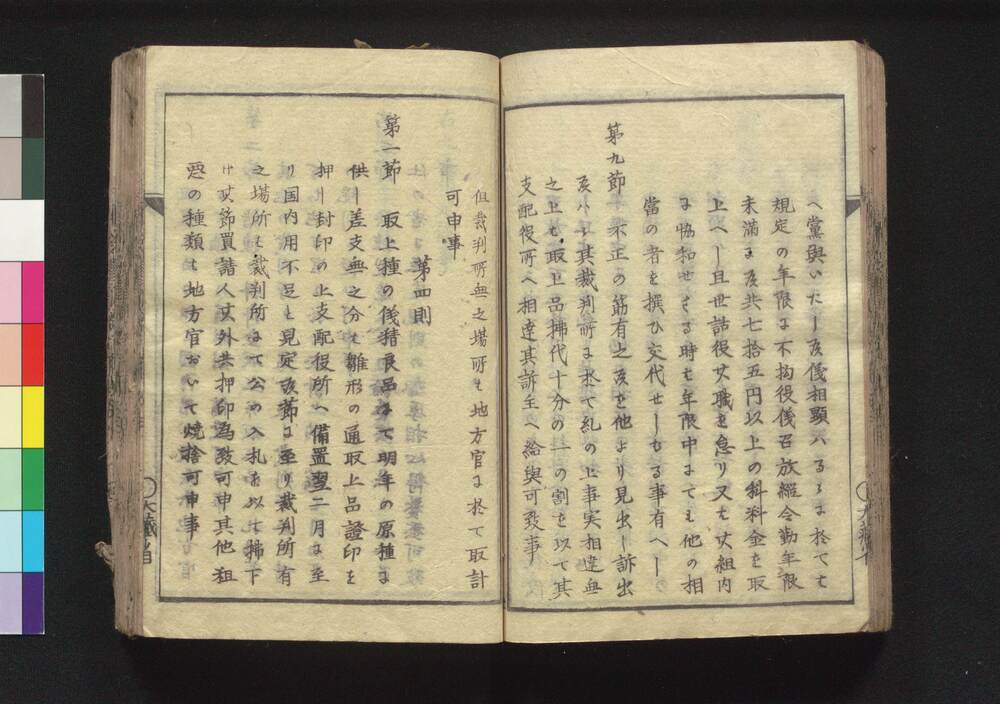 へ黨與いたし候儀相顯ハるゝに於てハ
規定の年限に不拘役儀召放縱令勤年限
未滿に候共七拾五円以上の科料金を取
上へし且世話役其職を怠り又ハ其組内
に恊和せさる時ハ年限中にても他の相
當の者を撰ひ交代せしむる事有へし
第九節 不正の筋有之候を他より見出し訴出
候ハゝ其裁判所に於て糺の上事実相違無
之上ハ取上品拂代十分の一の割を以て其
支配役所へ相達其訴主へ給與可致事
但裁判所無之場所ハ地方官に於て取計
可申事
第四則
第一節 取上種の儀精良品にて明年の原種に
供し差支無之分ハ雛形の通取上品證印を
押し封印の上支配役所へ備置翌二月に至
り国内用不足と見定候節に至り裁判所有
之場所ハ裁判所にて公の入札を以て拂下
け其節買請人其外共押印為致可申其他粗
悪の種類ハ地方官おいて焼捨可申事
大藏省